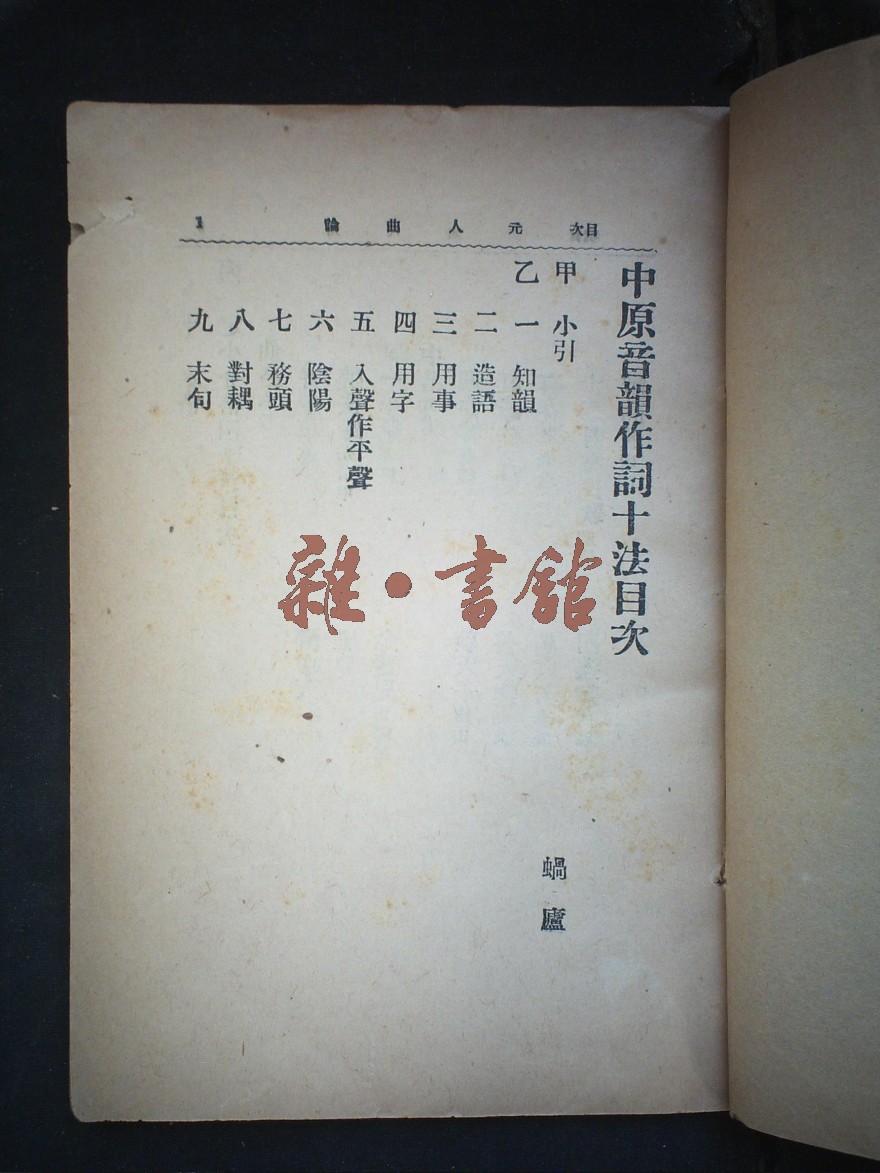 目次 元人曲論 1
中原音韻作詞十法目次
蝸廬
甲 小引
乙 一 知韻
二 造語
三 用事
四 用字
五 入聲作平聲
六 陰陽
七 務頭
八 對耦
九 末句
雜·書館